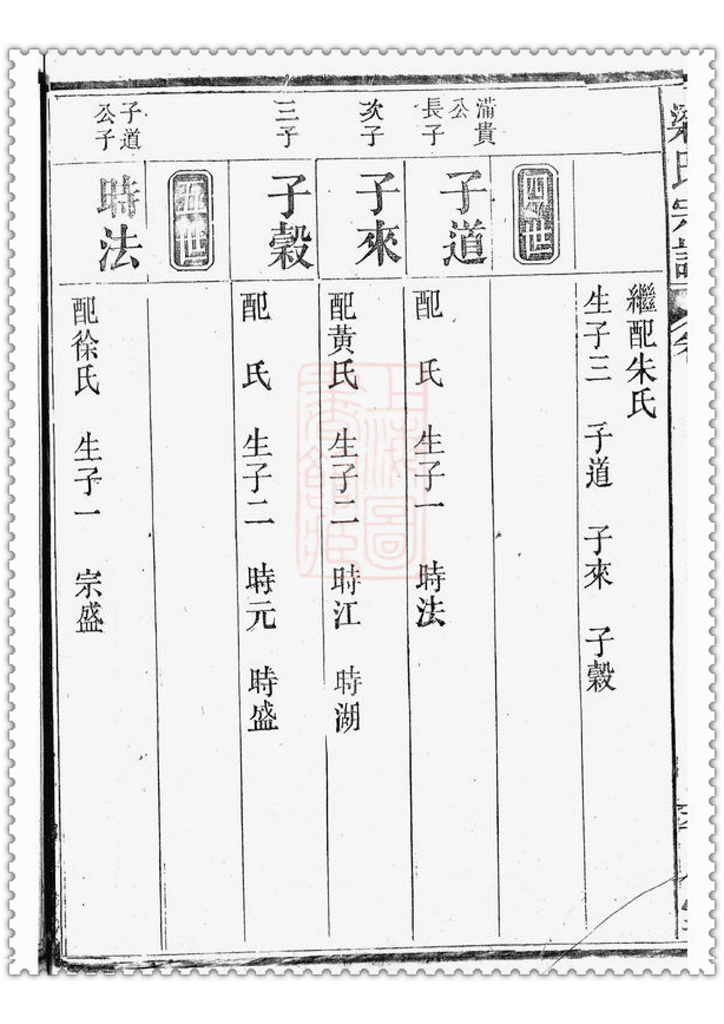 梁氏宗譜
卷
繼配朱氏
生子三 子道 子來 子穀
四世
滿貴
公
長子
子道
配 氏 生子一 時法
次子
子來
配黃氏 生子二 時江 時湖
三子
子穀
配 氏 生子二 時元 時盛
五世
子道
公子
時法
配徐氏 生子一 宗盛
上海圖
書館藏